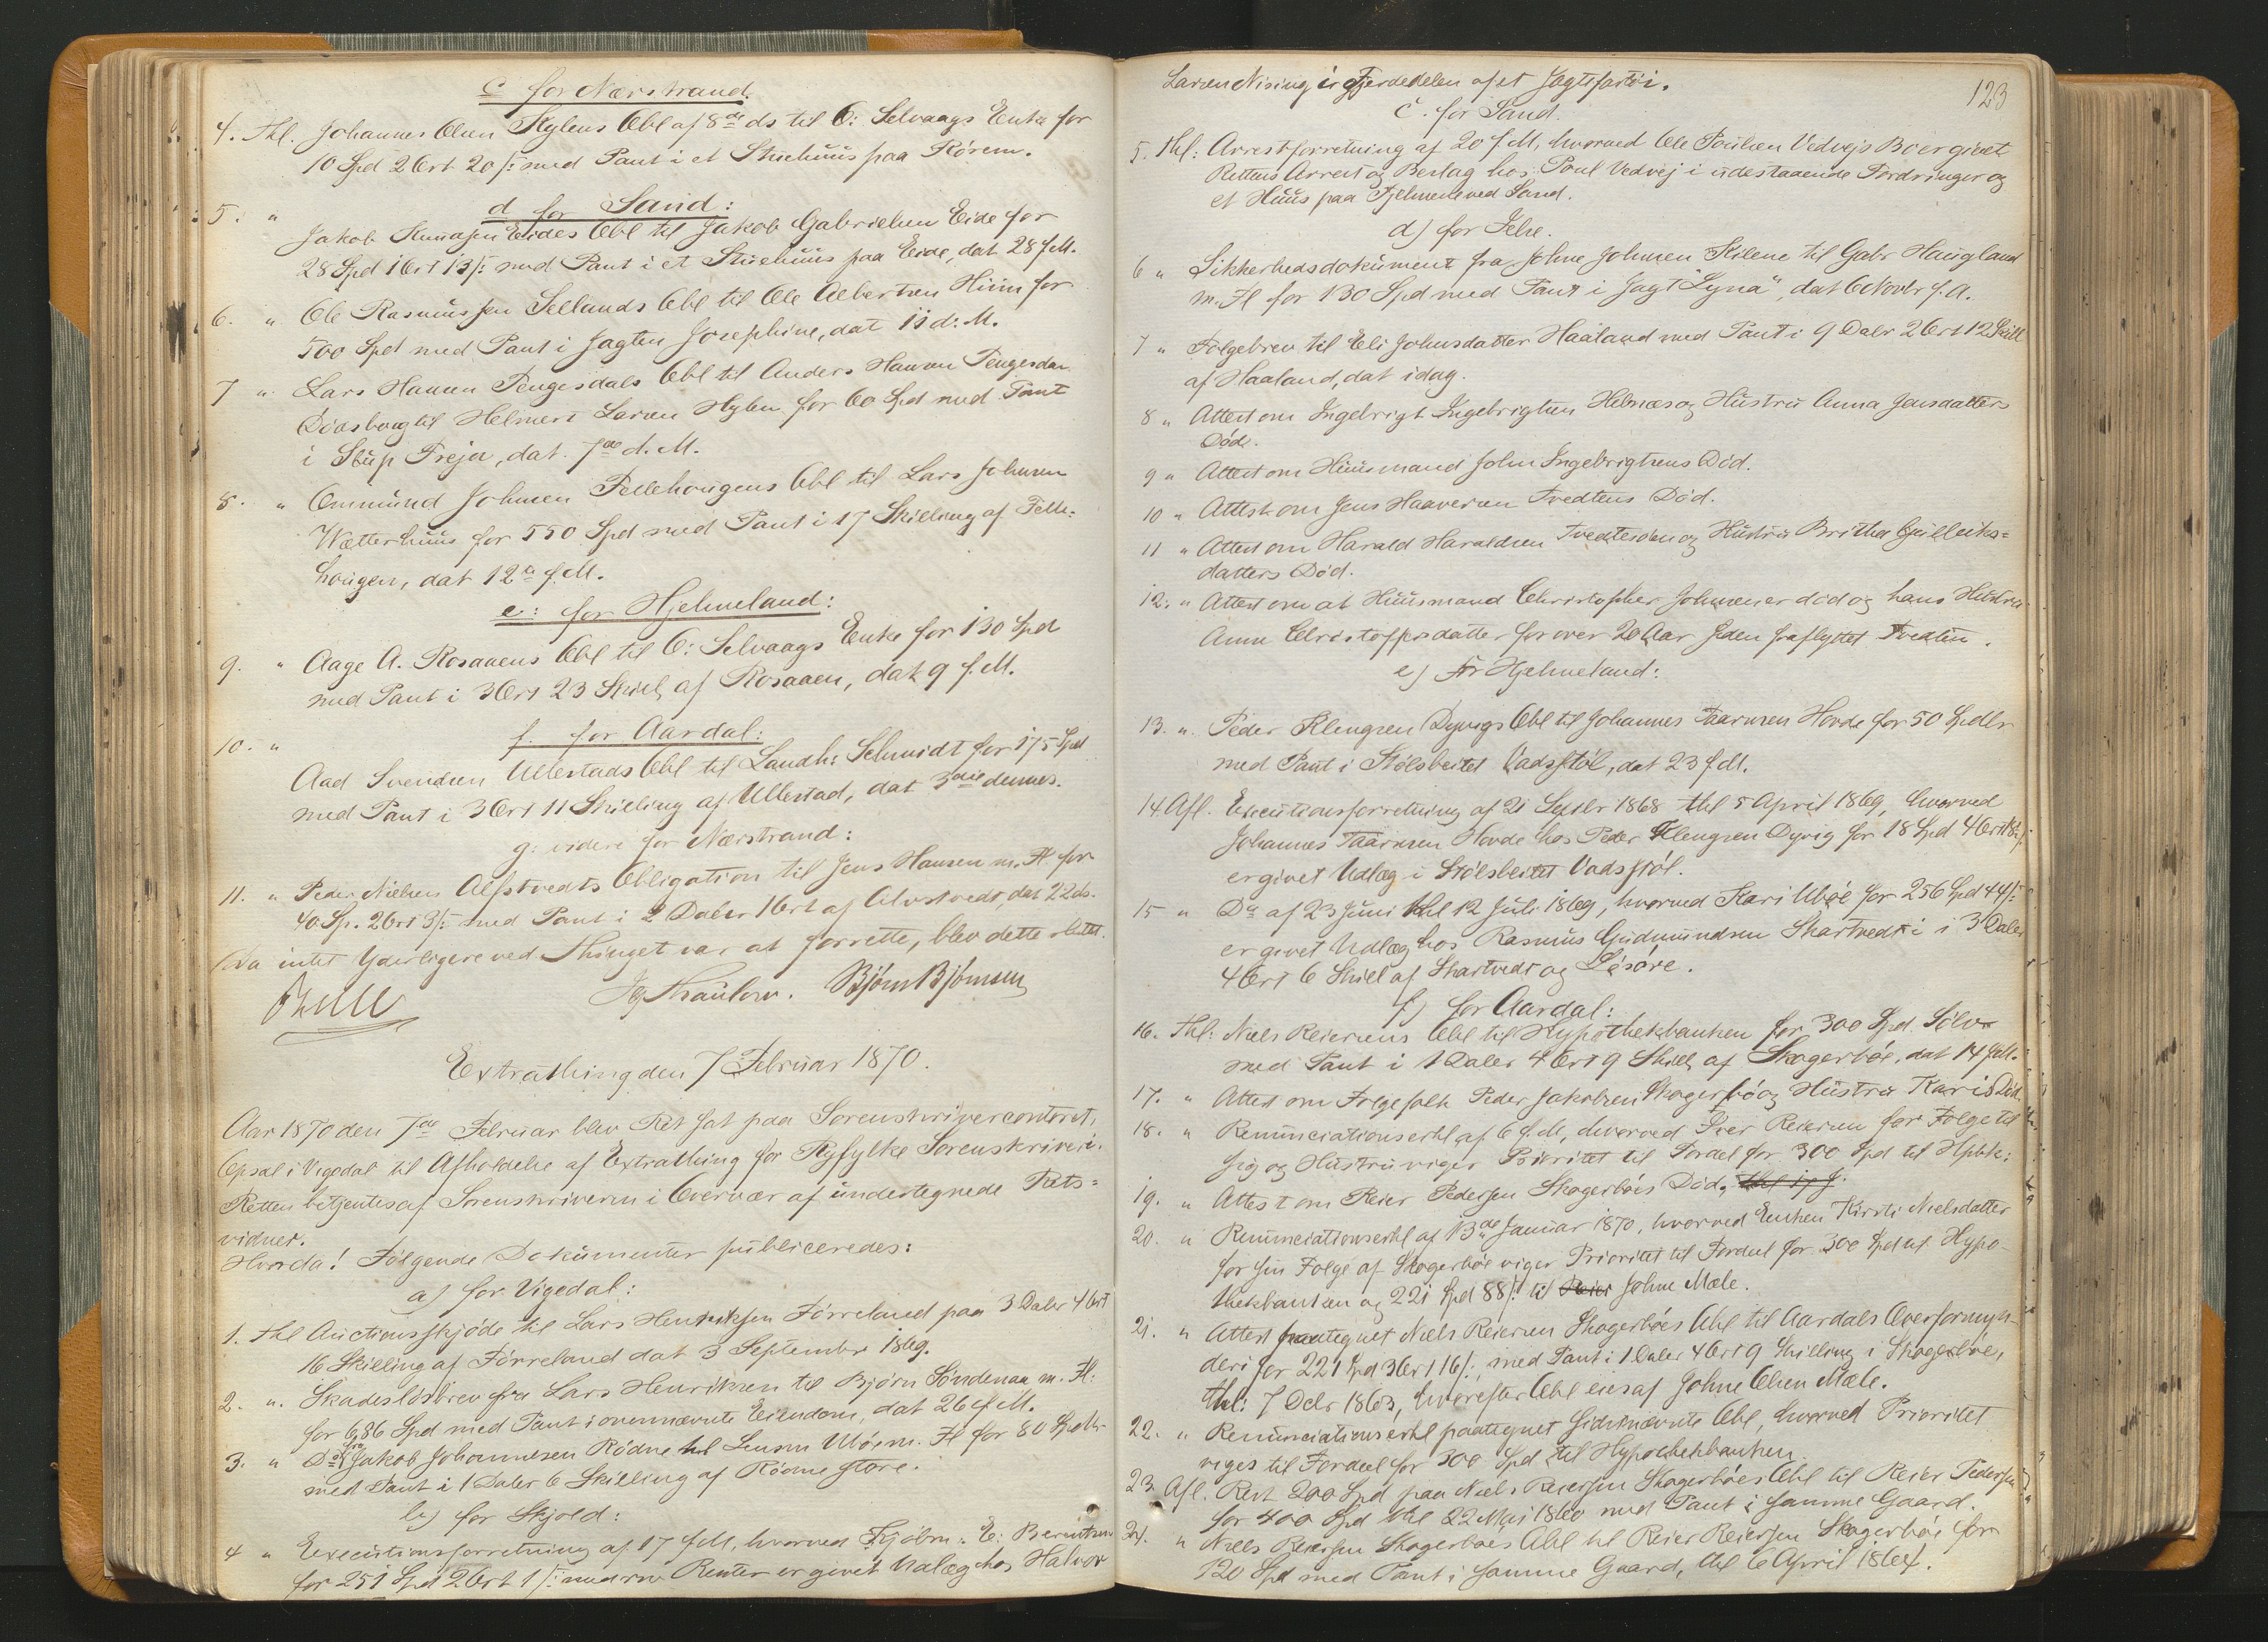 c for Nærstrand.
4. Thl. Johannes Olsen Kylens Obl af 8de ds til O: Selvaags Enke for
10 Spd 2 Ort 20 s: med Pant i et Stuehuus paa Rørem.
d for Sand:
5. " Jakob Knudsen Eides Obl til Jakob Gabrielsen Eide for
28 Spd 1 Ort 13 s: med Pant i et Stuehuus paa Eide, dat 28 f.M.
6. " Ole Rasmussen Sellands Obl til Ole Albertsen Hiim for
500 Spd med Pant i Jagten Josephine, dat 11 d: M.
7 " Lars Hansen Tengesdals Obl til Anders Hansen Tengesdal
til Helmert Larsen Hylen for 60 Spd med Pant
i Slup Freja, dat. 7de d. M.
8. " Ommund Johnsen Tellehougens Obl til Lars Johnsen
Wetterhuus for 550 Spd med Pant i 17 Skilling af Telle-
hougen, dat 12te f. M.
e: for Hjelmeland:
9. " Aage A. Rosaaens Obl til O: Selvaags Enke for 130 Spd
med Pant i 3 Ort 23 Skill af Rosaaen, dat 9 f. M.
f. for Aardal:
10. " Aad Svendsen Ullestads Obl til Landh: Schmidt for 175 Spd
med Pant i 3 Ort 11 Skilling af Ullestad, dat 3die dennes.
g: videre for Nærstrand:
11. " Peder Nielsen Alfstvedts Obligation til Jens Hansen m. Fl for
40 Sp. 2 Ort 3 s: med Pant i 2 Daler 1 Ort af Alvstvedt, dat 22 ds.
Da intet Yderligere ved Thinget var at forrette, blev dette sluttet.
Thaulow. Bjørn Bjørnsen
Extrathing den 7 Februar 1870.
Aar 1870 den 7de Februar blev Ret sat paa Sorenskrivercontoret,
Opsal i Vigedal til Afholdelse af Extrathing for Ryfylke Sorenskriveri.
Retten betjentes af Sorenskriveren i Overvær af undertegnede Rets=
vidner.
Hvorda! Følgende Dokumenter publiceredes:
a) for Vigedal:
1. Thl Auctionsskjøde til Lars Henriksen Førreland paa 3 Daler 4 Ort
16 Skilling af Førreland dat 3 September 1869.
2. ". Skadesløsbrev fra Lars Henriksen til Bjørn Søndenaa m. Fl:
for 686 Spd med Pant i ovennævnte Eiendom, dat 26 f. M.
3. " Do fra Jakob Johannesen Rødne til Lensm Ubøe m. Fl for 80 Spdlr
med Pant i 1 Daler 6 Skilling af Rødne store.
b) for Skjold:
4 " Executionsforretning af 17 f M, hvorved Kjøbm: E: Berentsen
for 251 Spd 2 Ort 1 s: med Renter er givet Udlæg hos Halvor
123
Larsen Nising i Fjerdedelen af et Jagtefartøi.
c. for Sand.
5. Thl: Arrestforretning af 20 f. M, hvorved Ole Poulsen Vedvejs Bo er givet
Rettens Arrest og Beslag hos Poul Vedvej i udestaaende Fordringer og
et Huus paa Fjelmerle ved Sand.
d) for Jelse.
6 " Sikkerhedsdokument fra Johne Johnsen Kilene til Gabr Haugland
m. Fl for 130 Spd med Pant i Jagt "Lyna", dat 6 Novbr f. A.
7 " Følgebrev til Eli Johnsdatter Haaland med Pant i 9 Daler 2 Ort 12 Skill
af Haaland, dat idag.
8 " Attest om Ingebrigt Ingebrigtsen Hebnæs og Hustru Anna Jensdatters
Død.
9 " Attest om Huusmand John Ingebrigtsens Død.
10 " Attest om Jens Haaversen Tvedtens Død.
11 " Attest om Harald Haraldsen Tvedteråen og Hustru Britha Gulleiks=
datters Død.
12. " Attest om at Huusmand Christopher Johnsen er død og hans Hustru
Anna Christoffersdatter for over 20 Aar siden fraflyttet Tvedten.
e) For Hjelmeland:
13. " Peder Klengsen Dyvigs Obl til Johannes Taarnsen Hovde for 50 Spdlr
med Pant i Stølsbeitet Vadsstøl, dat 23 f. M.
14. Afl. Executionsforretning af 21 Septbr 1868 thl 5 April 1869, hvorved
Johannes Taarnsen Hovde hos Peder Klengsen Dyvig for 18 Spd 4 Ort
er givet Udlæg i Stølsbeitet Vadsstøl.
15 " Do af 23 Juni thl 12 Juli 1869, hvorved Kari Ubøe for 256 Spd 44 s:
er givet Udlæg hos Rasmus Gudmundsen Skartvedt i 3 Daler
4 Ort 6 Skill af Skartvedt og
f) for Aardal:
16. Thl: Niels Reiersens Obl til Hypothekbanken for 300 Spd. Sølv
med Pant i 1 Daler 4 Ort 9 Skill af Skogerbøe, dat 14 f M.
17. " Attest om Følgefolk Peder Jakobsen Skogerbø og Hustru Karis Død.
18. " Renunciationserkl af 6 f. M, hvorved Iver Reiersen for Følge til
sig og Hustru viger Prioritet til Fordel for 300 Spd til Hpbk:
19. " Attest om Reier Pedersen Skogerbøes Død.
20. " Renunciationserkl af 13de Januar 1870, hvorved Enken Kirsti Nielsdatter
for sin Følge af Skogerbøe viger Prioritet til Fordeel for 300 Spd til Hypo-
thekbanken og 221 Spd 88 s: til Johne Mæle.
21. " Attest paategnet Niels Reiersen Skogerbøes Obl til Aardals Overformyn-
deri for 221 Spd 3 Ort 16 s:, med Pant i 1 Daler 4 Ort 9 Skilling i Skogerbøe,
thl: 7 Decbr 1863, hvorefter Obl eies af Johne Olsen Mæle.
22. " Renunciationserkl paategnet sidstnævnte Obl, hvorved Prioritet
viges til Fordeel for 300 Spd til Hypothekbanken
23. Afl. Rest 200 Spd paa Niels Reiersen Skogerbøes Obl til Reier Pedersen
for 400 Spd thl 22 Mai 1860 med Pant i samme Gaard.
24. " Niels Reiersen Skogerbøes Obl til Reier Reiersen Skogerbøe for
120 Spd med Pant i samme Gaard, thl 6 April 1864.